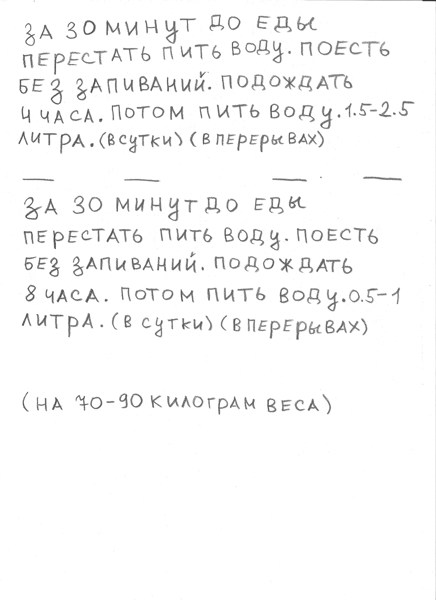 ЗА 30 МИНУТ ДО ЕДЫ
ПЕРЕСТАТЬ ПИТЬ ВОДУ. ПОЕСТЬ
БЕЗ ЗАПИВАНИЙ. ПОДОЖДАТЬ
4 ЧАСА. ПОТОМ ПИТЬ ВОДУ. 1.5-2.5
ЛИТРА. (В СУТКИ) (В ПЕРЕРЫВАХ)
ЗА 30 МИНУТ ДО ЕДЫ
ПЕРЕСТАТЬ ПИТЬ ВОДУ. ПОЕСТЬ
БЕЗ ЗАПИВАНИЙ. ПОДОЖДАТЬ
8 ЧАСА. ПОТОМ ПИТЬ ВОДУ. 0.5-1
ЛИТРА. (В СУТКИ) (В ПЕРЕРЫВАХ)
(НА 70-90 КИЛОГРАМ ВЕСА)